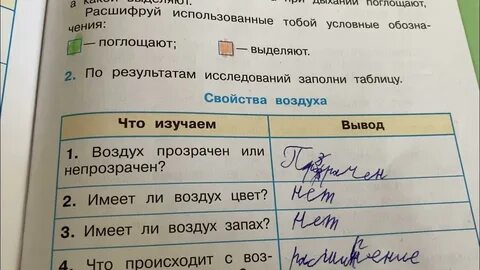 а какой выделяют. при дыхании поглощают,
Расшифруй использованные тобой условные обозна-
чения:
— поглощают; — выделяют.
2. По результатам исследований заполни таблицу.
Свойства воздуха
Что изучаем Вывод
1. Воздух прозрачен или
непрозрачен? Прозрачен
2. Имеет ли воздух цвет? нет
3. Имеет ли воздух запах? Нет
4. Что происходит с воз- расширение